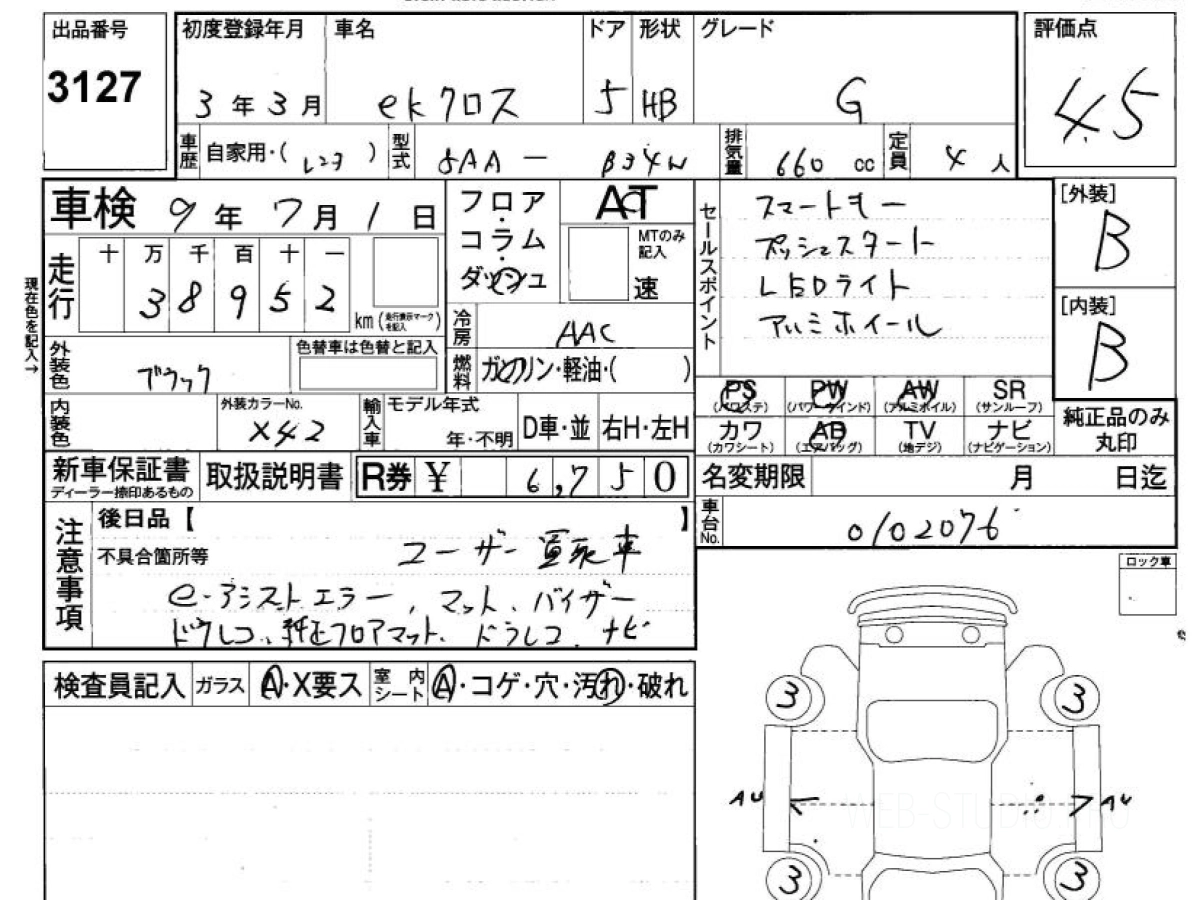 出品番号
3127
初度登録年月
3年3月
車名
ekクロス
ドア
5
形状
HB
グレード
G
評価点
4.5
車歴
自家用・( レンタ )
型式
5AA-B34W
排気量
660cc
定員
4人
車検 9年7月1日
フロア・コラム・ダッシュ
AT
MTのみ記入
速
走行
十万千百十一
38952
km(走行表示マークを記入)
現在色を記入→
冷房
AAC
燃料
ガソリン・軽油・( )
外装色
ブラック
色替車は色替と記入
内装色
外装カラーNo.
X42
輸入車
モデル年式
年・不明
D車・並
右H・左H
セールスポイント
スマートキー
プッシュスタート
LEDライト
アルミホイール
[外装]
B
[内装]
B
PS
(パワステ)
PW
(パワーウインド)
AW
(アルミホイル)
SR
(サンルーフ)
カワ
(カワシート)
AB
(エアバッグ)
TV
(地デジ)
ナビ
(ナビゲーション)
純正品のみ丸印
新車保証書
ディーラー捺印あるもの
取扱説明書
R券 ¥ 6,750
名変期限 月 日迄
車台No.
0102076
注意事項
後日品【 】
不具合箇所等
ユーザー買取車
e-アシストエラー、マット、バイザー
ドラレコ、純正フロアマット、ドラレコ、ナビ
ロック車
検査員記入
ガラス
A・X要ス
室内シート
A・コゲ・穴・汚れ・破れ
3
3
AU
AU
WEB-STUDIO.PRO
3
3